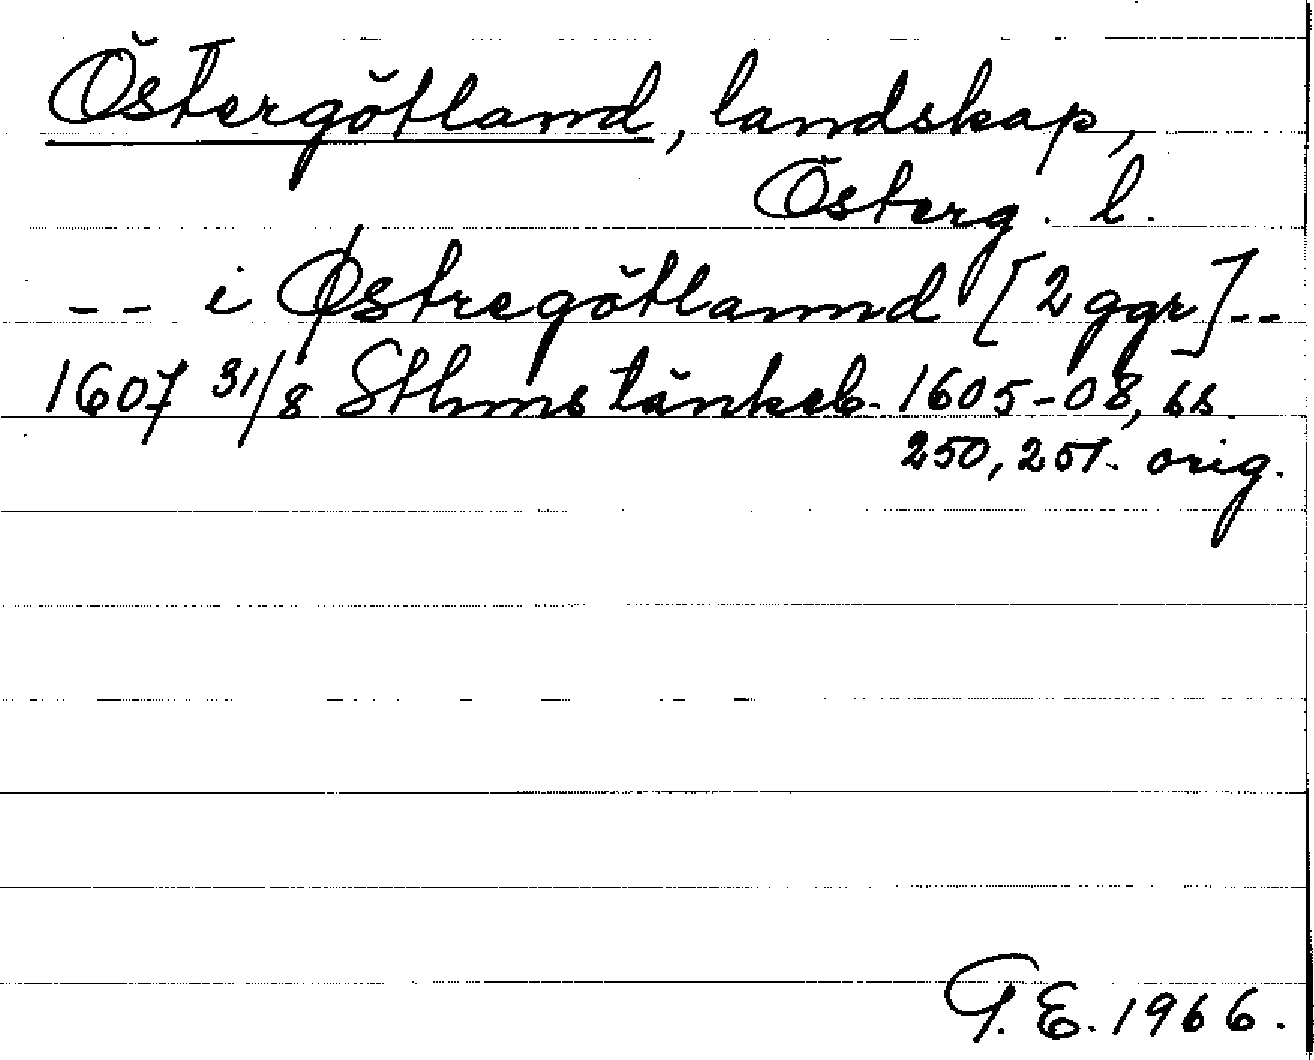 Östergötland, landskap,
Österg. l.
-- i Østregötlannd [2 ggr]--
1607 31/8 Sthms tänkeb. 1605-08, ss.
250, 251. orig.
G. E. 1966.